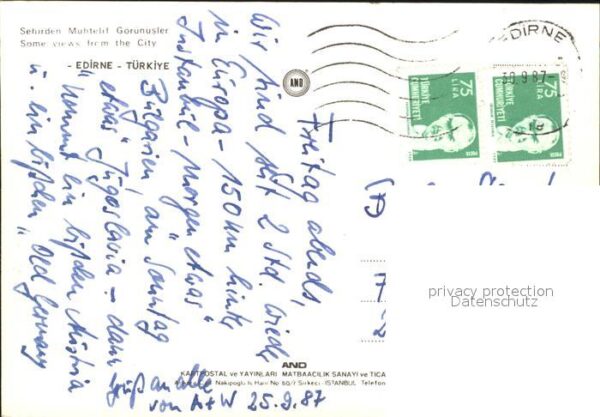 Şehirden Muhtelif Görünüşler
Some views from the City
- EDİRNE - TÜRKİYE
AND
EDİRNE
9.87
75
LİRA
TÜRKİYE
CUMHURİYETİ
75
LİRA
TÜRKİYE
CUMHURİYETİ
Freitag abends,
Wir sind seit 2 Std. wieder
in Europa - 150 km hinter
Istanbul - morgen etwas
Bulgarien am Sonntag
etwas Jugoslavia - dann
"kommt ein bißchen Austria
u. ein bißchen "Old Germany
Gruß an alle
von A+W 25.9.87
(A)
AND
KARTPOSTAL ve YAYINLARI MATBAACILIK SANAYİ ve TİCA
Nakipoğlu Han No 60/7 Sirkeci - İSTANBUL Telefon
privacy protection
Datenschutz